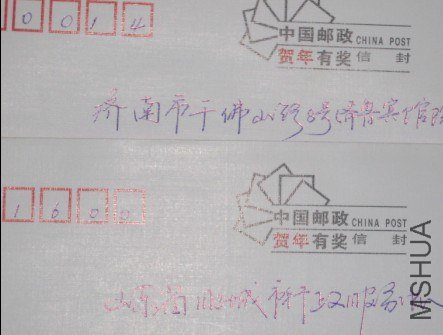 0014
中国邮政 CHINA POST
贺年有奖 信 封
济南市千佛山路8号济鲁宾馆
1600
中国邮政 CHINA POST
贺年有奖 信 封
山东省 城市行政服务
MSHUA